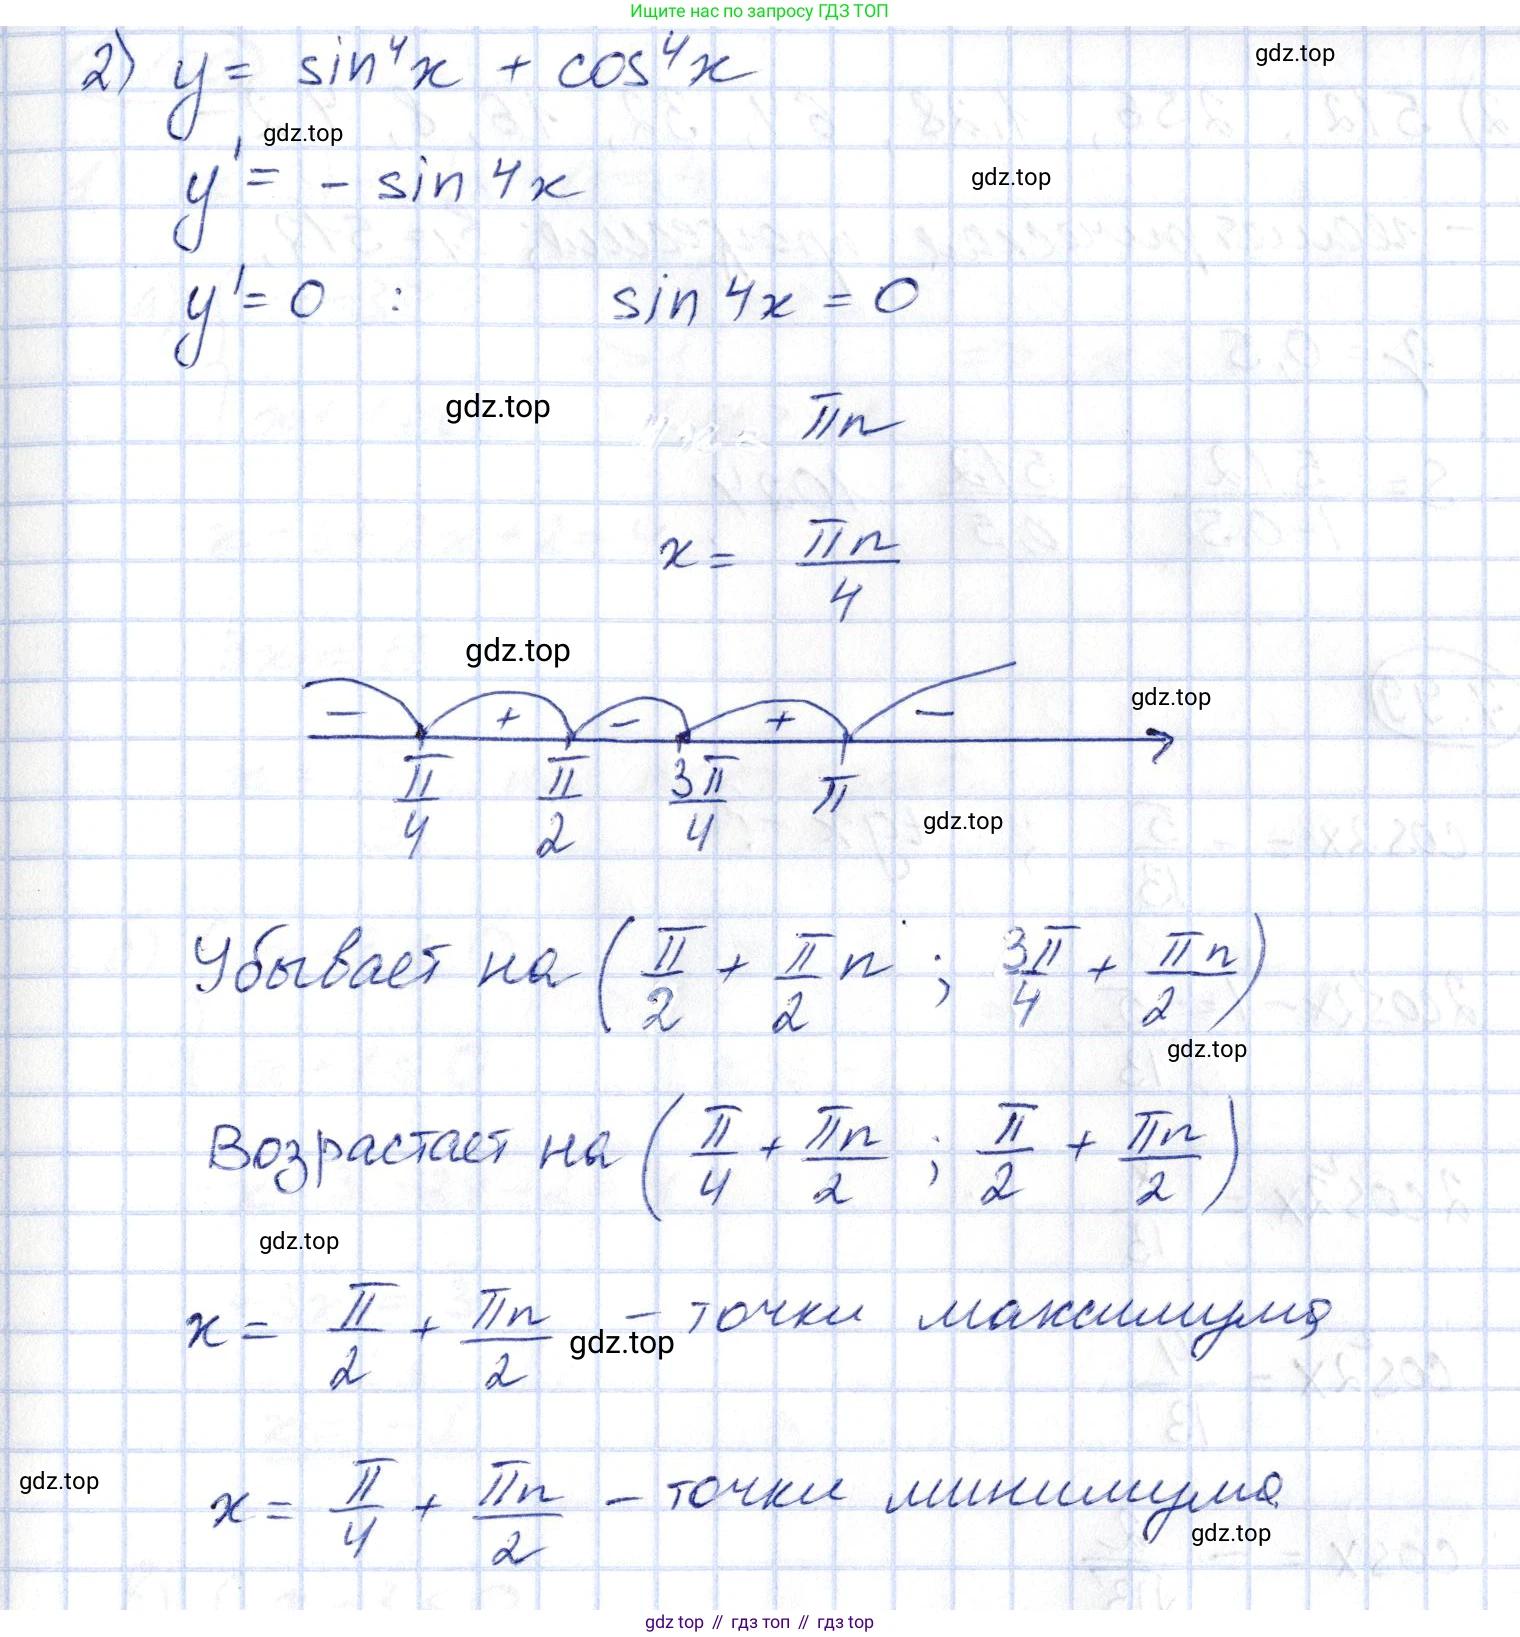 Ищите нас по запросу ГДЗ ТОП
2) y = sin⁴x + cos⁴x
gdz.top
gdz.top
y' = - sin 4x
gdz.top
y' = 0 : sin 4x = 0
gdz.top
πn
x = πn/4
gdz.top
gdz.top
- + - + -
π/4 π/2 3π/4 π
gdz.top
Убывает на (π/2 + π/2 n ; 3π/4 + πn/2)
gdz.top
Возрастает на (π/4 + πn/2 ; π/2 + πn/2)
gdz.top
x = π/2 + πn/2 - точки максимума
gdz.top
gdz.top
x = π/4 + πn/2 - точки минимума
gdz.top
gdz top // гдз топ // гдз top